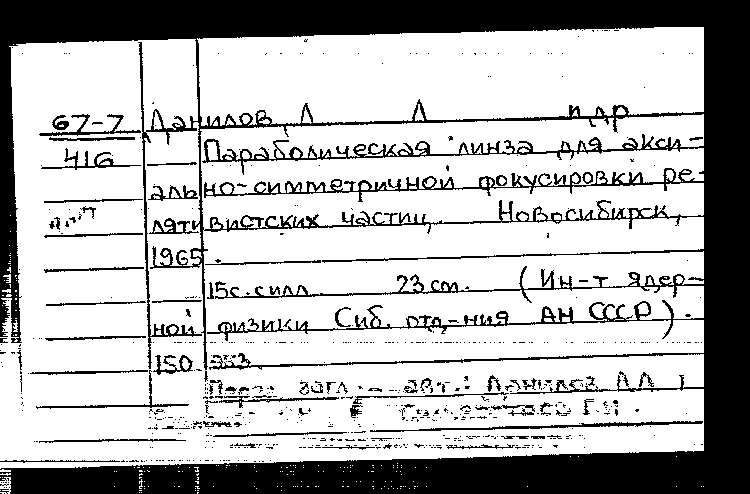 67-7 Данилов, Л Л и др
416 Параболическая линза для акси-
ально-симметричной фокусировки ре-
лятивистских частиц. Новосибирск,
1965.
15с. с илл. 23 см. (Ин-т ядер-
ной физики Сиб. отд-ния АН СССР).
150 экз.
Перед загл. авт.: Данилов Л.Л.,
Г.И.